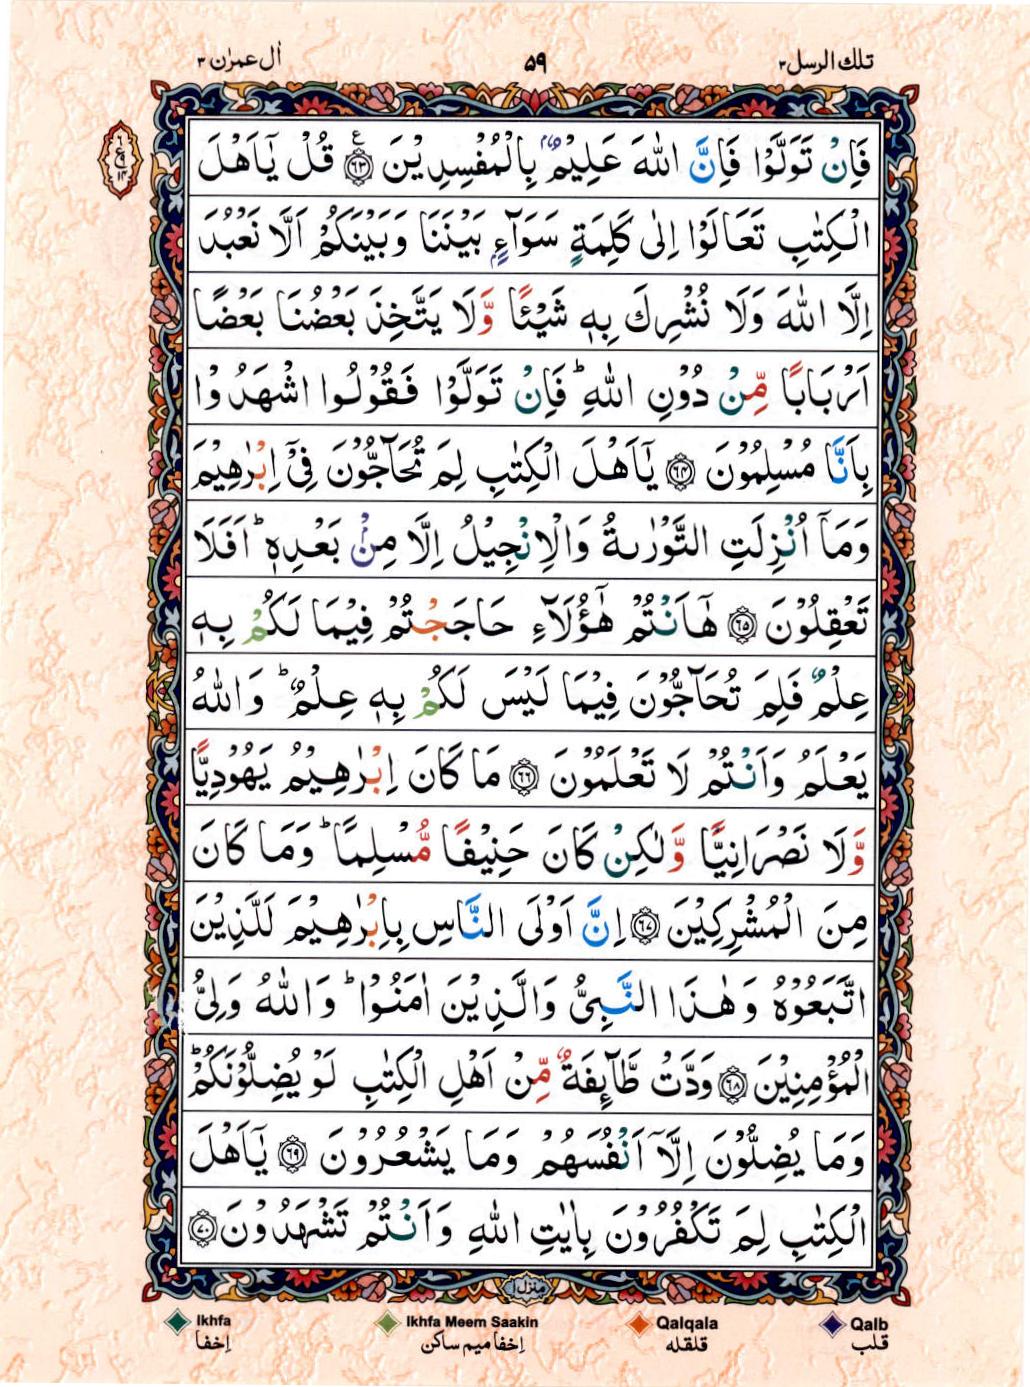 تلك الرسل ٣
٥٩
اٰل عمرٰن ٣
فَاِنْ تَوَلَّوْا فَاِنَّ اللّٰهَ عَلِيْمٌۢ بِالْمُفْسِدِيْنَ ﴿٦٣﴾ قُلْ يٰٓاَهْلَ
الْكِتٰبِ تَعَالَوْا اِلٰى كَلِمَةٍ سَوَآءٍۭ بَيْنَنَا وَبَيْنَكُمْ اَلَّا نَعْبُدَ
اِلَّا اللّٰهَ وَلَا نُشْرِكَ بِهٖ شَيْـًٔا وَّلَا يَتَّخِذَ بَعْضُنَا بَعْضًا
اَرْبَابًا مِّنْ دُوْنِ اللّٰهِ ؕ فَاِنْ تَوَلَّوْا فَقُوْلُوا اشْهَدُوْا
بِاَنَّا مُسْلِمُوْنَ ﴿٦٤﴾ يٰٓاَهْلَ الْكِتٰبِ لِمَ تُحَآجُّوْنَ فِيْٓ اِبْرٰهِيْمَ
وَمَآ اُنْزِلَتِ التَّوْرٰىةُ وَالْاِنْجِيْلُ اِلَّا مِنْۢ بَعْدِهٖ ؕ اَفَلَا
تَعْقِلُوْنَ ﴿٦٥﴾ هٰٓاَنْتُمْ هٰٓؤُلَآءِ حَاجَجْتُمْ فِيْمَا لَكُمْ بِهٖ
عِلْمٌ فَلِمَ تُحَآجُّوْنَ فِيْمَا لَيْسَ لَكُمْ بِهٖ عِلْمٌ ؕ وَاللّٰهُ
يَعْلَمُ وَاَنْتُمْ لَا تَعْلَمُوْنَ ﴿٦٦﴾ مَا كَانَ اِبْرٰهِيْمُ يَهُوْدِيًّا
وَّلَا نَصْرَانِيًّا وَّلٰكِنْ كَانَ حَنِيْفًا مُّسْلِمًا ؕ وَمَا كَانَ
مِنَ الْمُشْرِكِيْنَ ﴿٦٧﴾ اِنَّ اَوْلَى النَّاسِ بِاِبْرٰهِيْمَ لَلَّذِيْنَ
اتَّبَعُوْهُ وَهٰذَا النَّبِيُّ وَالَّذِيْنَ اٰمَنُوْا ؕ وَاللّٰهُ وَلِيُّ
الْمُؤْمِنِيْنَ ﴿٦٨﴾ وَدَّتْ طَّآئِفَةٌ مِّنْ اَهْلِ الْكِتٰبِ لَوْ يُضِلُّوْنَكُمْ ؕ
وَمَا يُضِلُّوْنَ اِلَّآ اَنْفُسَهُمْ وَمَا يَشْعُرُوْنَ ﴿٦٩﴾ يٰٓاَهْلَ
الْكِتٰبِ لِمَ تَكْفُرُوْنَ بِاٰيٰتِ اللّٰهِ وَاَنْتُمْ تَشْهَدُوْنَ ﴿٧٠﴾
منزل ١
Ikhfa Ikhfa Meem Saakin Qalqala Qalb
اِخفا اِخفا میم ساکن قلقله قلب